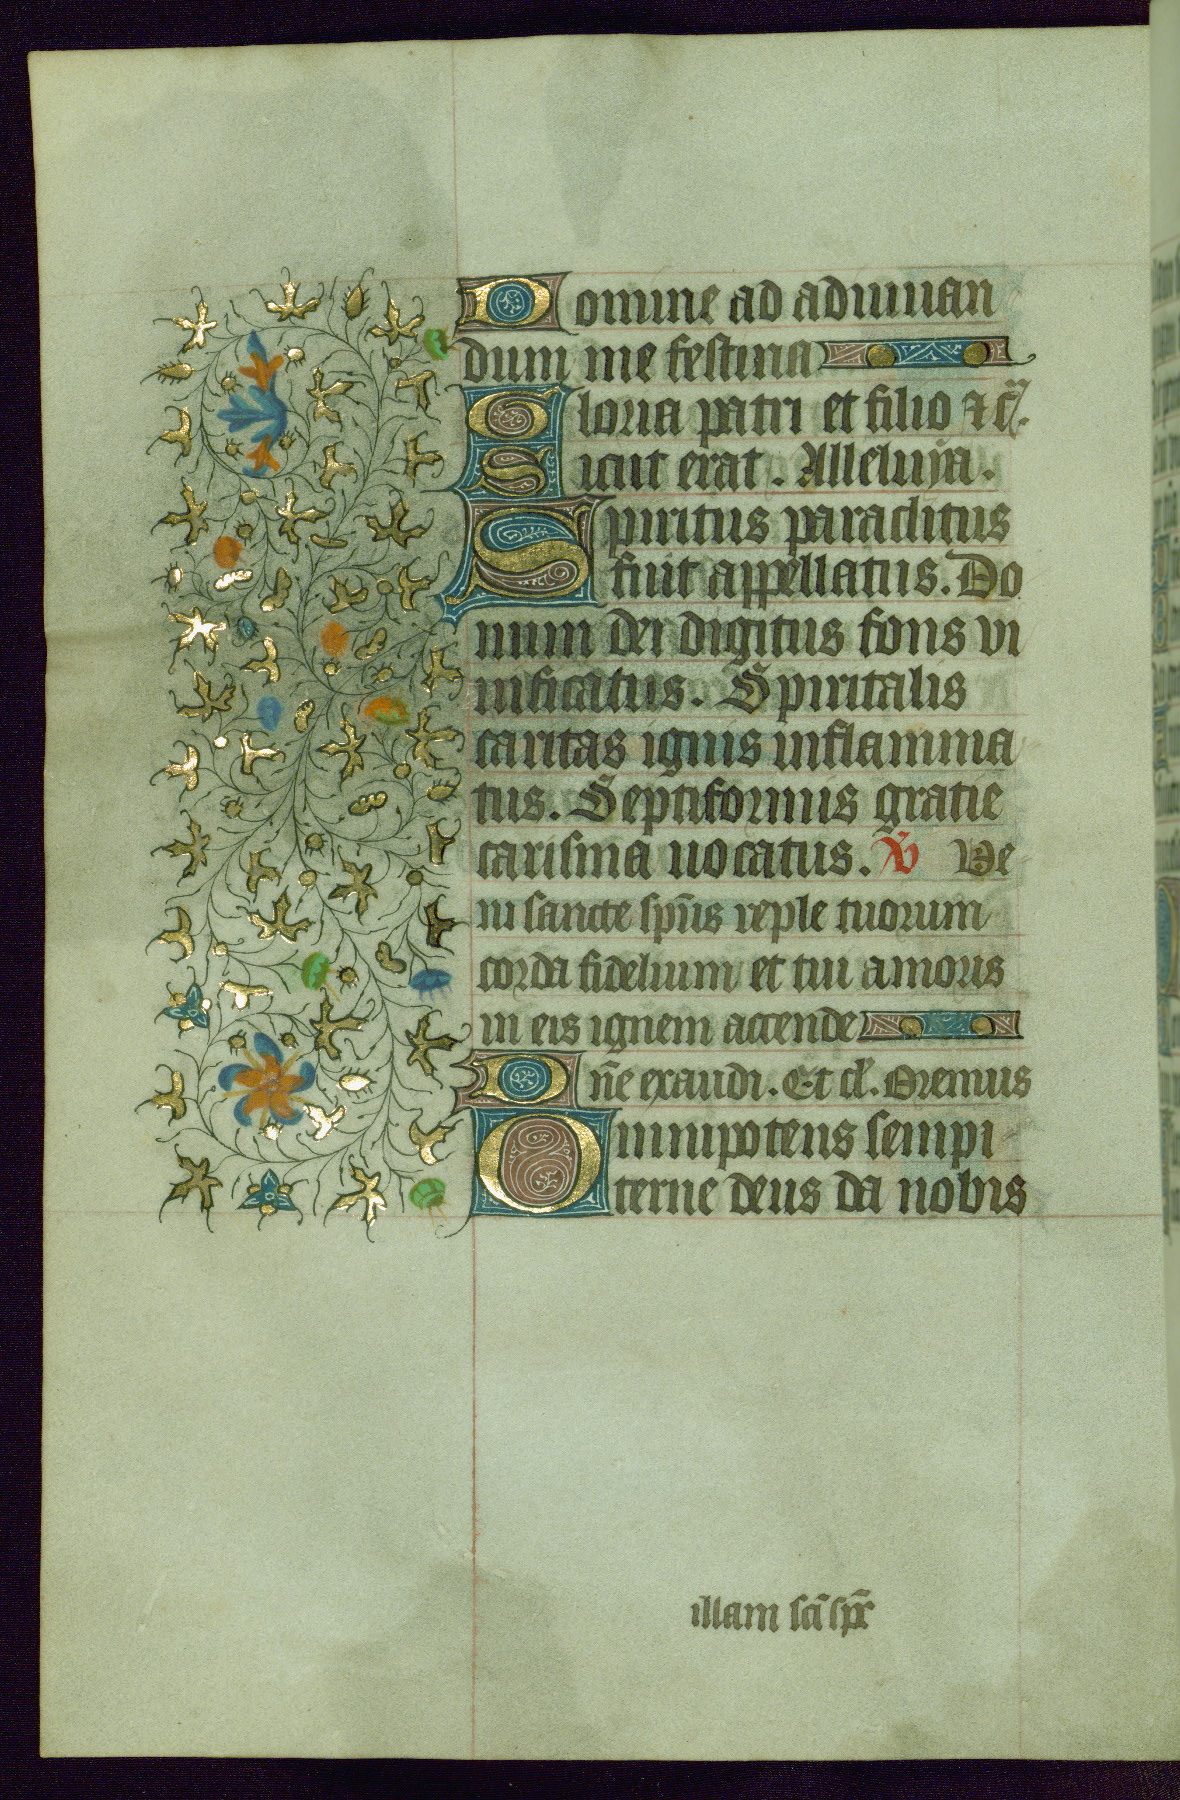 Domine ad adiuuan
dum me festina
Gloria patri et filio ⁊ c̄.
Sicut erat. Alleluya.
Spiritus paraclitus
fuit appellatus. Do
num dei digitus fons vi
uificatus. Spiritalis
caritas ignis inflamma
tus. Septiformis gratie
carisma uocatus. V̄ Ve
ni sancte sp̄us reple tuorum
corda fidelium et tui amoris
in eis ignem accende
Dn̄e exaudi. Et cl̄. Oremus
Omnipotens sempi
terne deus da nobis
illam sc̄i sp̄c